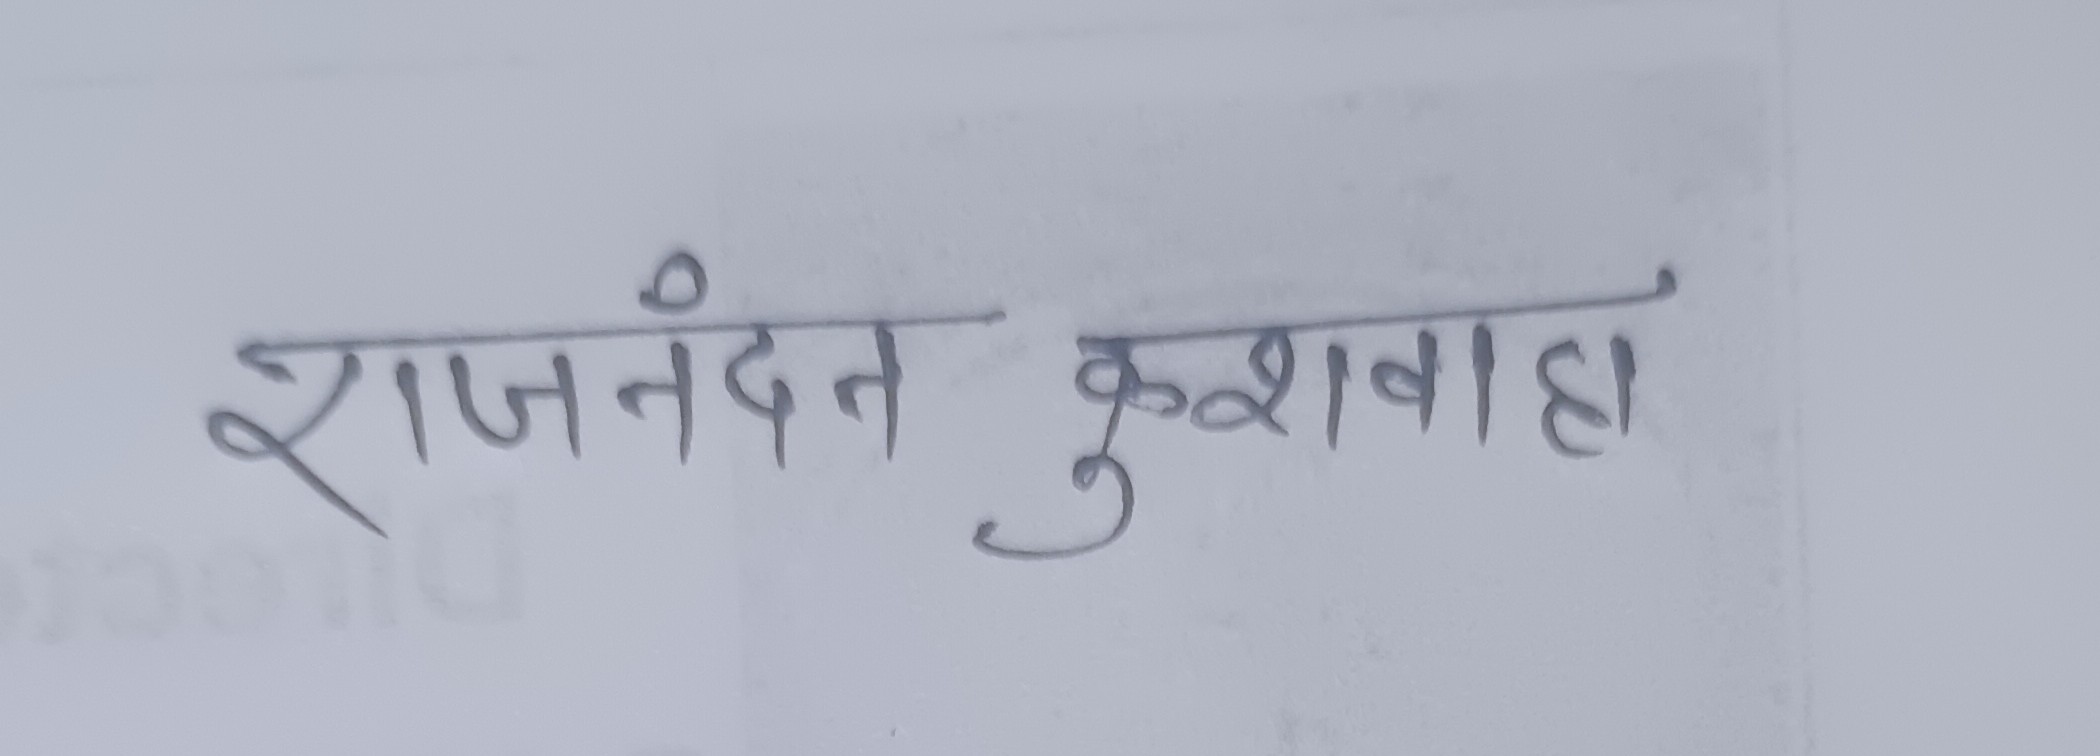 राजनंदन कुशवाहा